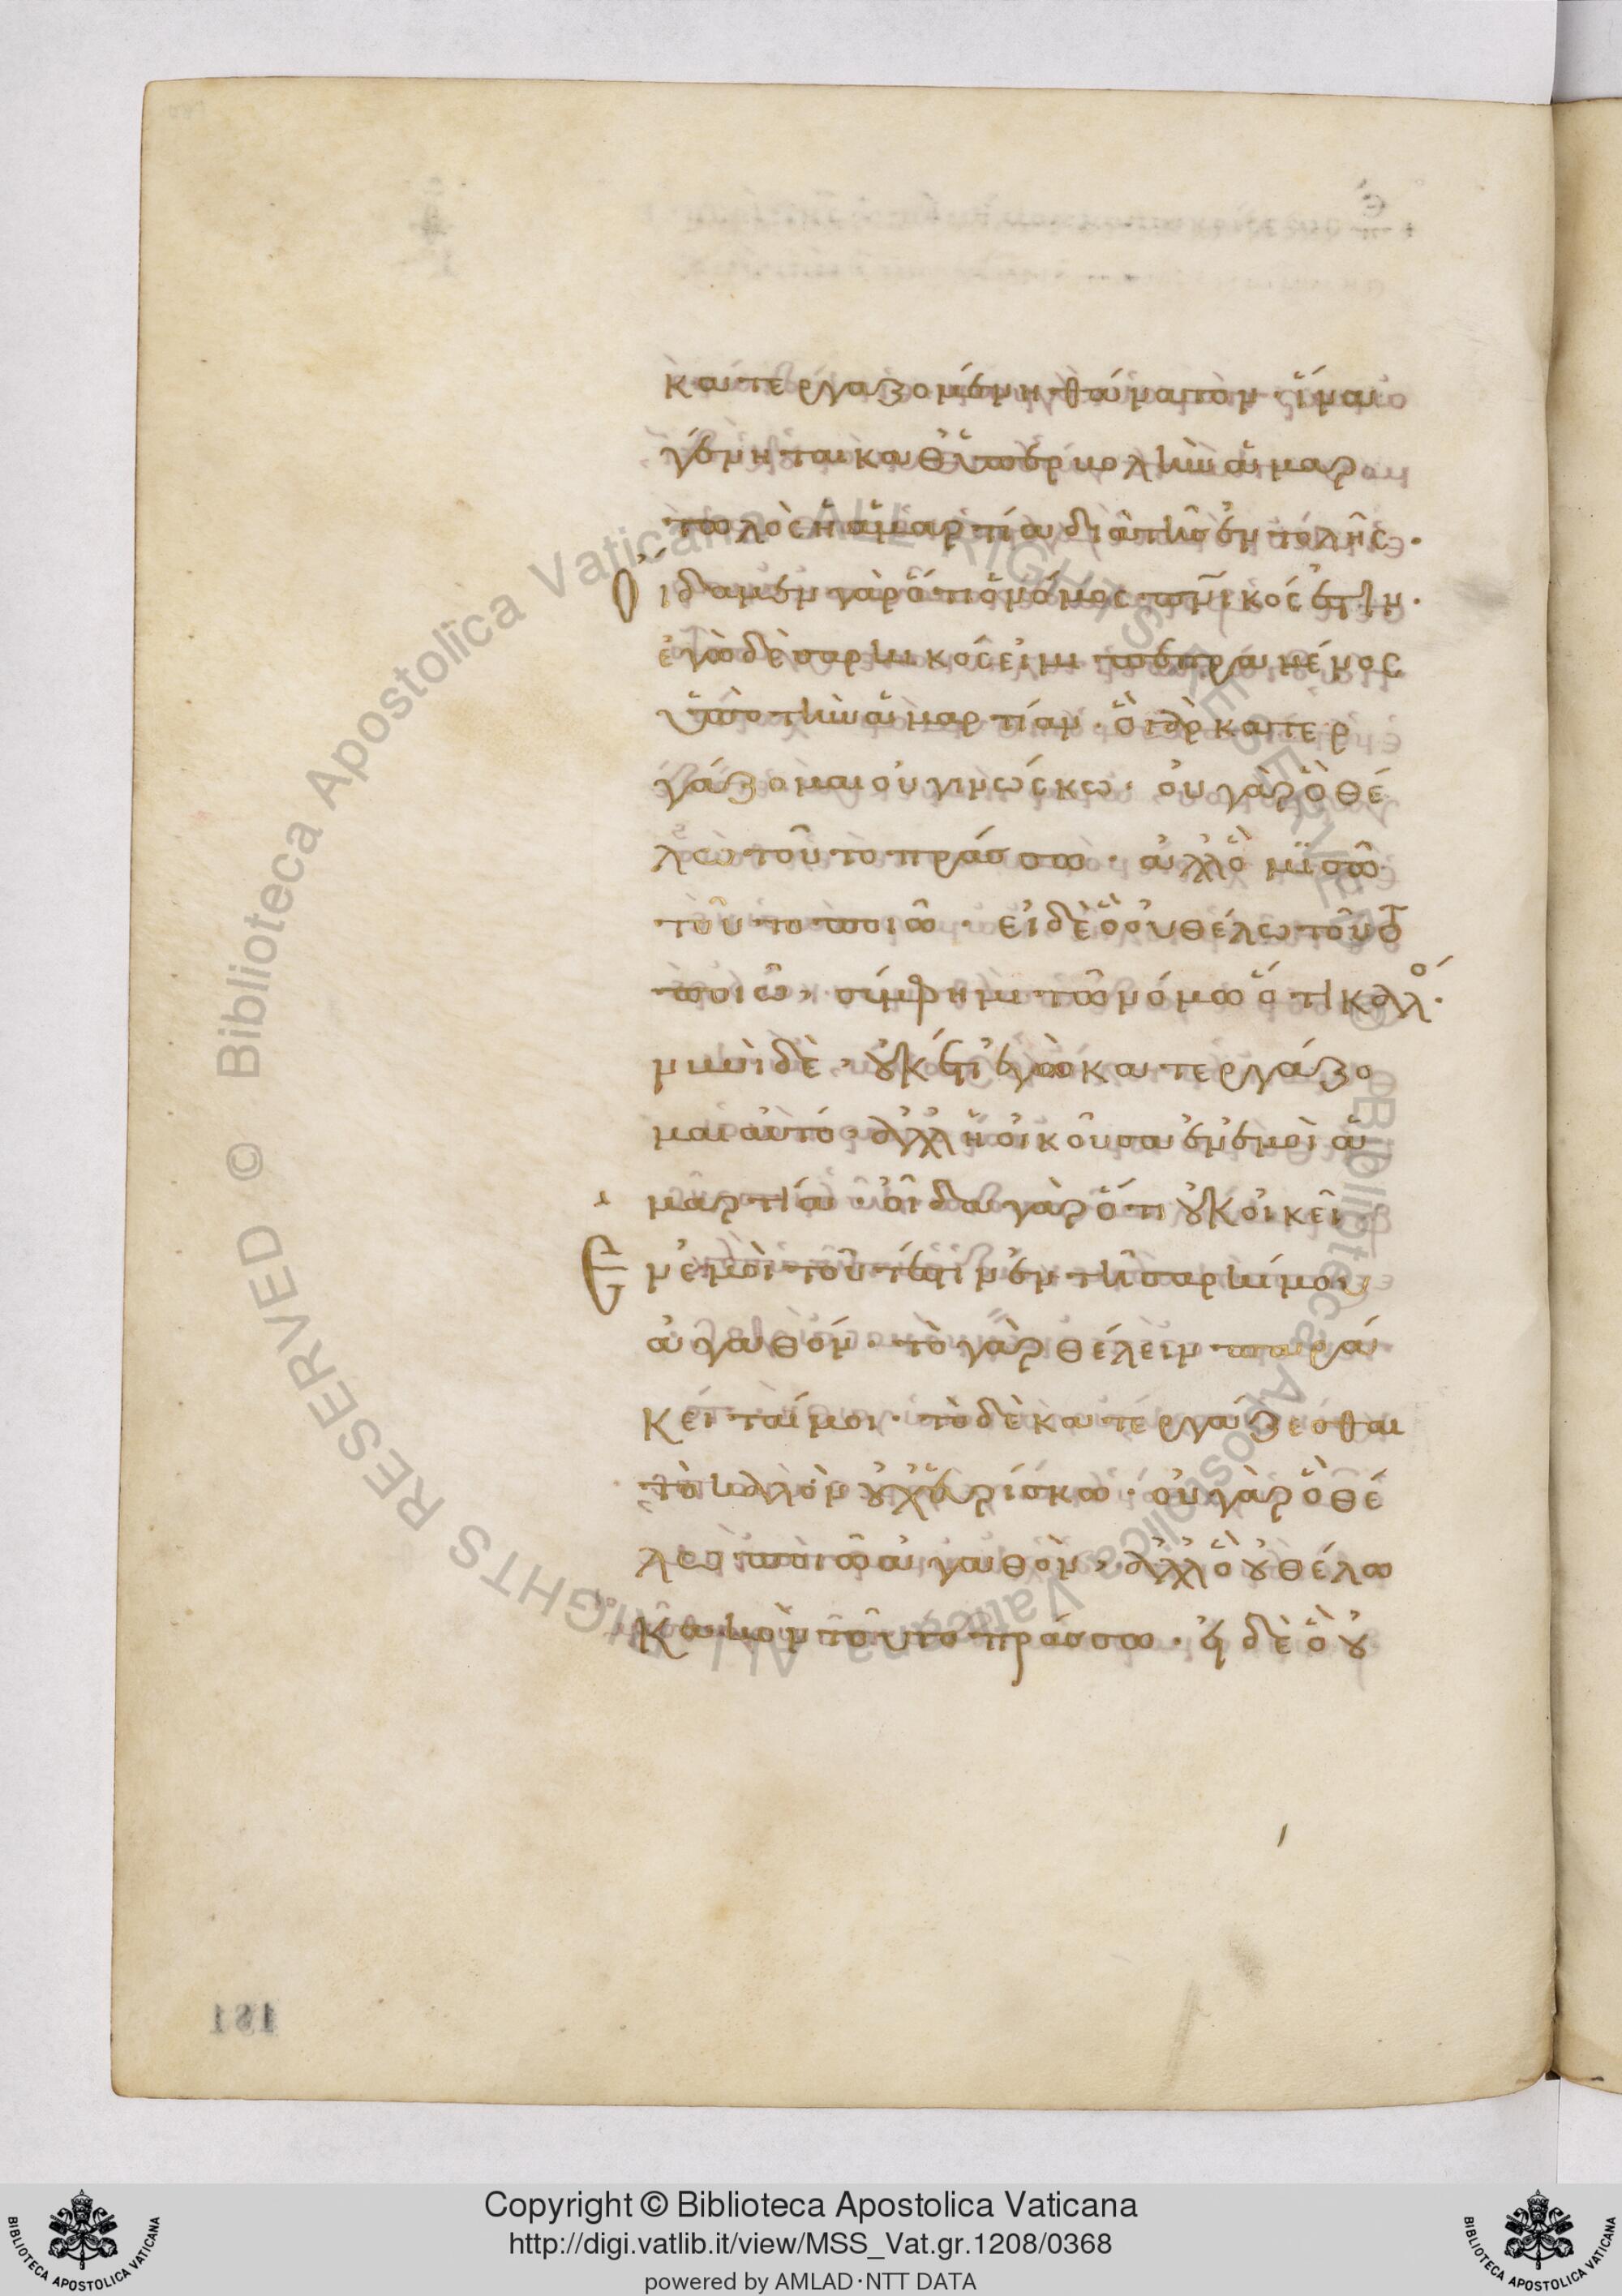 κατεργαζομένη θάνατον· ἵνα
γένηται καθ ὑπερβολὴν ἁμαρ
τωλὸς ἡ ἁμαρτία διὰ τῆς ἐντολῆς·
Οἴδαμεν γὰρ ὅτι ὁ νόμος πνικός ἐστιν·
ἐγὼ δὲ σαρκικός εἰμι πεπραμένος
ὑπὸ τὴν ἁμαρτίαν· ὃ γὰρ κατερ
γάζομαι οὐ γινώσκω· οὐ γὰρ ὃ θέ
λω τοῦτο πράσσω· ἀλλ ὃ μισῶ
τοῦτο ποιῶ· εἰ δὲ ὃ οὐ θέλω τοῦτο
ποιῶ, σύμφημι τῷ νόμῳ ὅτι καλός·
νυνὶ δὲ, οὐκέτι ἐγὼ κατεργάζο
μαι αὐτό· ἀλλ ἡ οἰκοῦσα ἐν ἐμοὶ ἁ
μαρτία· οἶδα γὰρ ὅτι οὐκ οἰκεῖ
Ἐν ἐμοὶ τοῦτέστιν ἐν τῇ σαρκί μου
ἀγαθόν· τὸ γὰρ θέλειν παρά
κειταί μοι· τὸ δὲ κατεργάζεσθαι
τὸ καλὸν οὐχ εὑρίσκω· οὐ γὰρ ὃ θέ
λω ποιῶ ἀγαθὸν, ἀλλ ὃ οὐ θέλω
κακὸν τοῦτο πράσσω· εἰ δὲ ὃ οὐ
181
© Biblioteca Apostolica Vaticana ALL RIGHTS RESERVED
© Biblioteca Apostolica Vaticana ALL RIGHTS RESERVED
Copyright © Biblioteca Apostolica Vaticana
http://digi.vatlib.it/view/MSS_Vat.gr.1208/0368
powered by AMLAD·NTT DATA
BIBLIOTECA APOSTOLICA VATICANA
BIBLIOTECA APOSTOLICA VATICANA